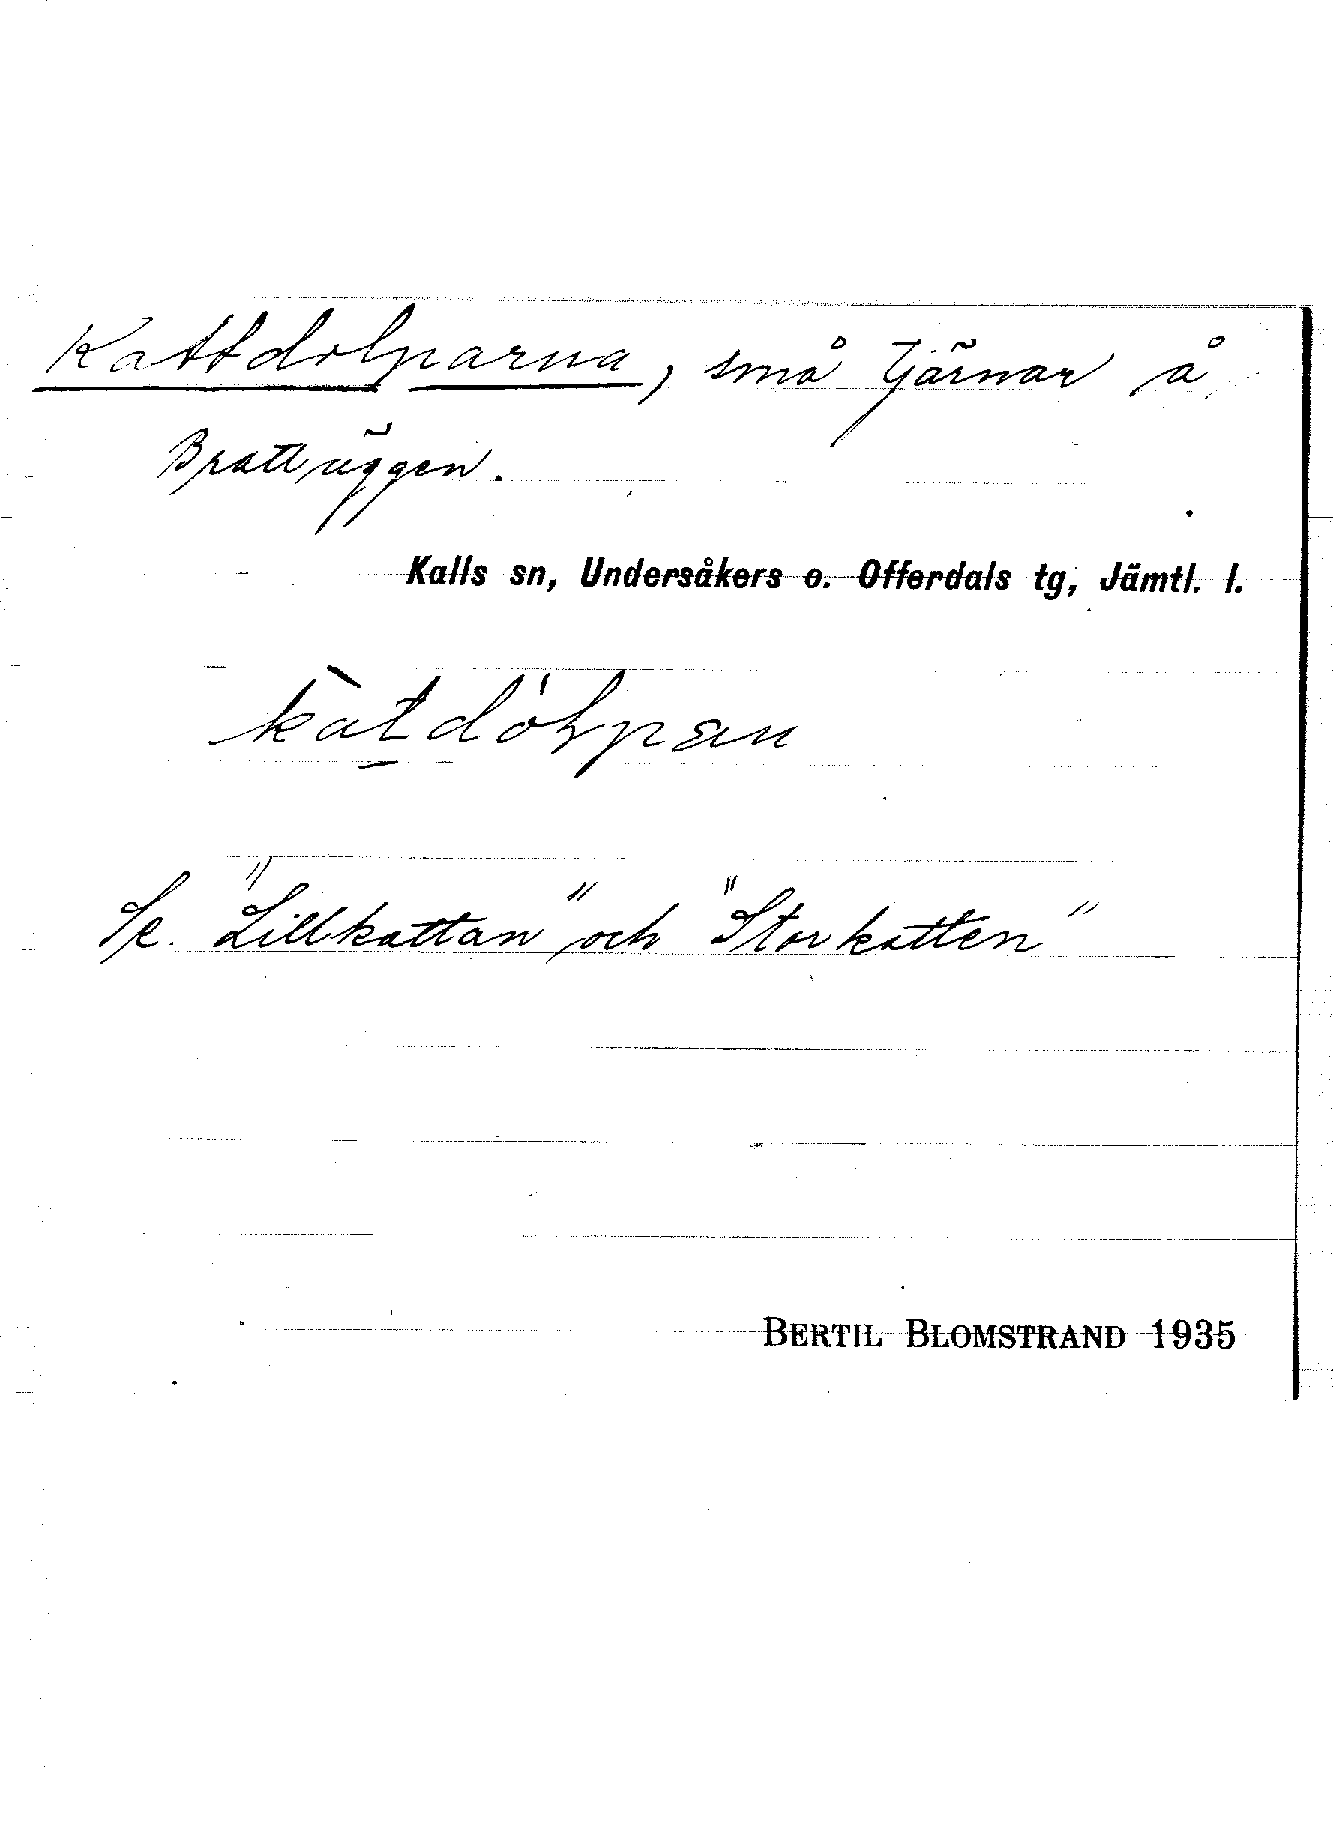 Kattdolparna, små tjärnar å
Brattruggen.
Kalls sn, Undersåkers o. Offerdals tg, Jämtl. l.
Se "Lillkattan" och "Storkatten"
BERTIL BLOMSTRAND 1935